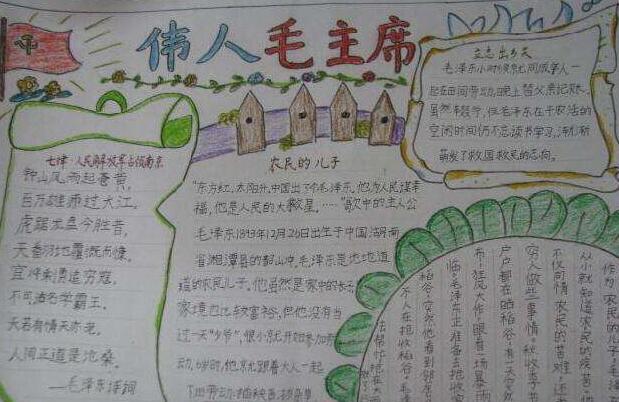 伟人毛主席
七律·人民解放军占领南京
钟山风雨起苍黄,
百万雄师过大江。
虎踞龙盘今胜昔,
天翻地覆慨而慷。
宜将 勇追穷寇,
不可沽名学霸王。
天若有情天亦老,
人间正道是沧桑。
——毛泽东诗词
农民的儿子
"东方红,太阳升,中国出了个毛泽东,他为人民谋幸
福,他是人民的大救星。……"歌中的主人公
毛泽东1893年12月26日出生于中国湖南
省湘潭县的韶山冲。毛泽东是地地道
道的农民儿子。他虽然是家中的长子
家境也比较富裕,但他没有当
过一天"少爷",很小就开始参加劳
动,6岁时,他就跟着大人一起
下田劳动,插秧
立志出乡关
毛泽东小时候就同成年人一
起在田间劳动,晚上替父亲记账。
虽然辛苦,但毛泽东在干农活的
空闲时间仍不忘读书学习,渐渐
萌发了救国救民的志向。
作为农民的儿子,毛泽
从小就知道农民的疾苦,他
不仅同情农民的苦难,还
穷人做些事情。秋收季节
户户都在晒稻谷。有一天突然
布,狂风大作,眼看一场暴雨
临。毛泽东正准备去抢收
稻谷,突然他看到邻
人在抢收稻谷。毛
法帮忙抢